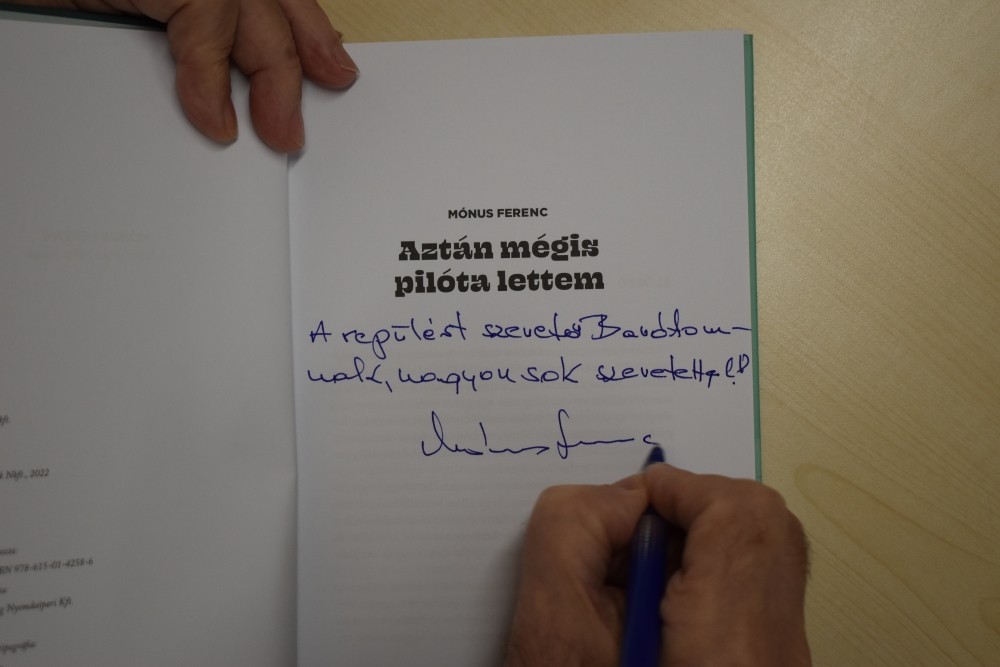 MÓNUS FERENC
Aztán mégis
pilóta lettem
A repülést szerető Barátom-
nak, nagyon sok szeretettel!
Mónus Ferenc
kft.
k Nkft., 2022
BN 978-615-01-4258-6
g Nyomdaipari Kft.
tipográfia: